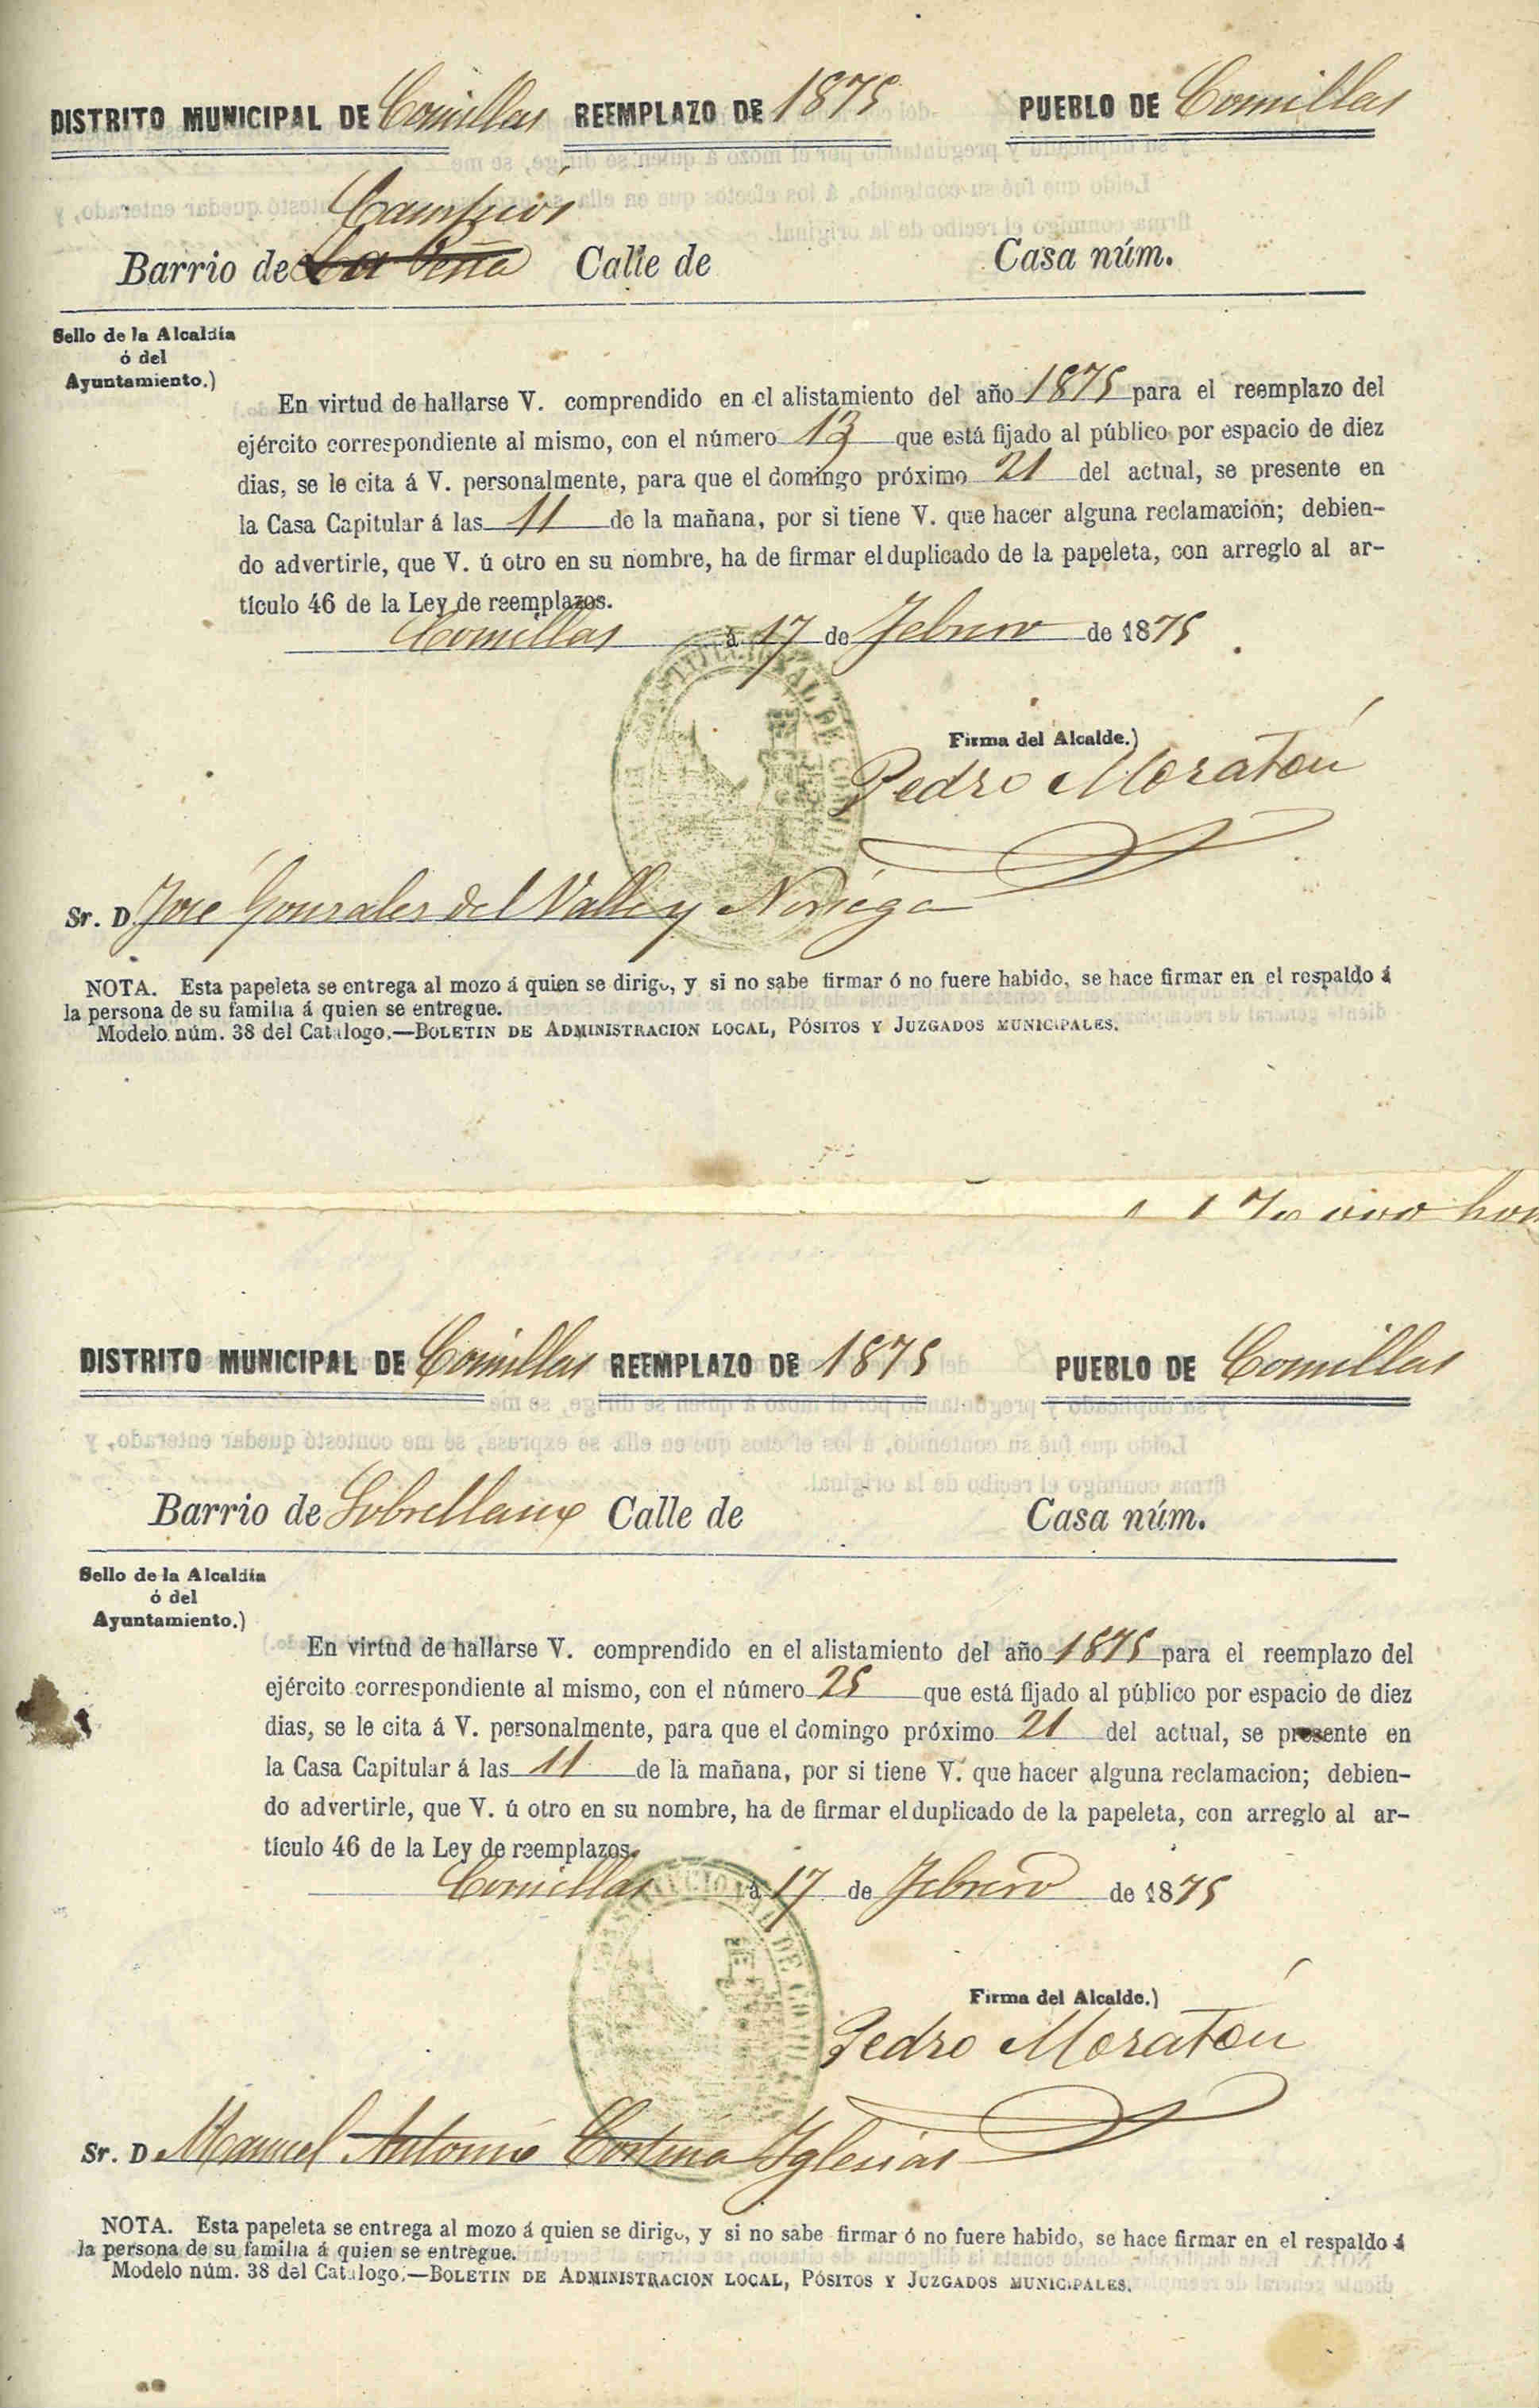 DISTRITO MUNICIPAL DE Comillas REEMPLAZO DE 1875 PUEBLO DE Comillas
Campíos
Barrio de La Peña Calle de Casa núm.
Sello de la Alcaldía
ó del
Ayuntamiento.)
En virtud de hallarse V. comprendido en el alistamiento del año 1875 para el reemplazo del
ejército correspondiente al mismo, con el número 13 que está fijado al público por espacio de diez
dias, se le cita á V. personalmente, para que el domingo próximo 21 del actual, se presente en
la Casa Capitular á las 11 de la mañana, por si tiene V. que hacer alguna reclamacion; debien-
do advertirle, que V. ú otro en su nombre, ha de firmar el duplicado de la papeleta, con arreglo al ar-
tículo 46 de la Ley de reemplazos.
Comillas á 17 de Febrero de 1875
Firma del Alcalde.)
Pedro Moratón
Sr. D. José Gonzales del Valle y Noriega
NOTA. Esta papeleta se entrega al mozo á quien se dirige, y si no sabe firmar ó no fuere habido, se hace firmar en el respaldo á
la persona de su familia á quien se entregue.
Modelo núm. 38 del Catalogo.—BOLETIN DE ADMINISTRACION LOCAL, PÓSITOS Y JUZGADOS MUNICIPALES.
DISTRITO MUNICIPAL DE Comillas REEMPLAZO DE 1875 PUEBLO DE Comillas
Barrio de Sobrellano Calle de Casa núm.
Sello de la Alcaldía
ó del
Ayuntamiento.)
En virtud de hallarse V. comprendido en el alistamiento del año 1875 para el reemplazo del
ejército correspondiente al mismo, con el número 25 que está fijado al público por espacio de diez
dias, se le cita á V. personalmente, para que el domingo próximo 21 del actual, se presente en
la Casa Capitular á las 11 de la mañana, por si tiene V. que hacer alguna reclamacion; debien-
do advertirle, que V. ú otro en su nombre, ha de firmar el duplicado de la papeleta, con arreglo al ar-
tículo 46 de la Ley de reemplazos.
Comillas á 17 de Febrero de 1875
Firma del Alcalde.)
Pedro Moratón
Sr. D. Manuel Antonio Cortina Iglesias
NOTA. Esta papeleta se entrega al mozo á quien se dirige, y si no sabe firmar ó no fuere habido, se hace firmar en el respaldo á
la persona de su familia á quien se entregue.
Modelo núm. 38 del Catalogo.—BOLETIN DE ADMINISTRACION LOCAL, PÓSITOS Y JUZGADOS MUNICIPALES.